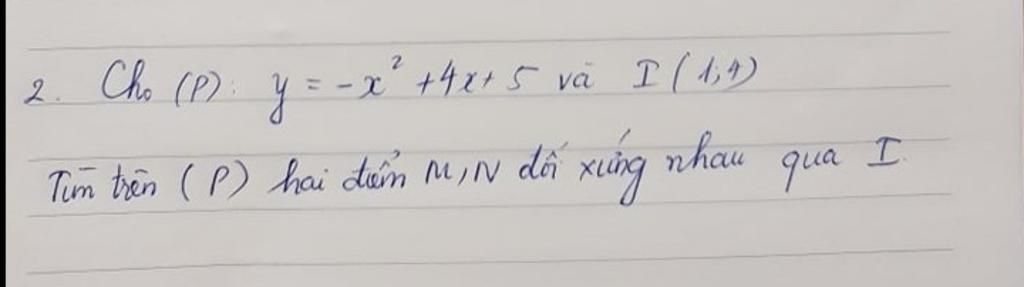 2. Cho (P): y = -x² + 4x + 5 và I (1;4)
Tìm trên (P) hai điểm M, N đối xứng nhau qua I.